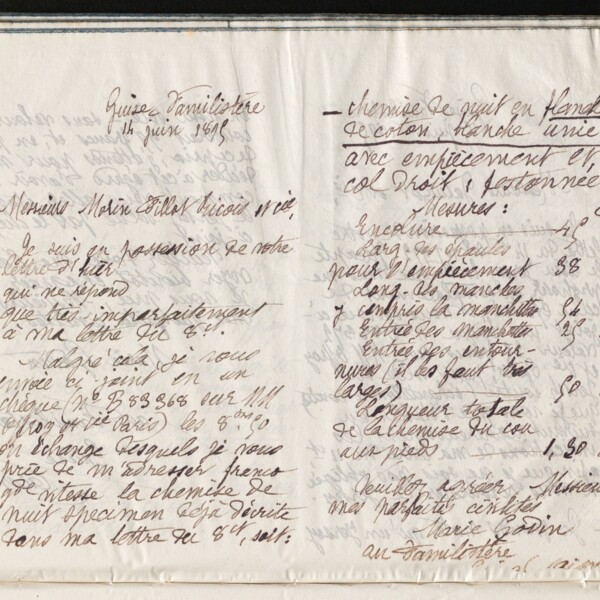 Guise Familistère
14 juin 1895
Messieurs Morin Fillot Ricois et cie,
Je suis en possession de votre
lettre d'hier
qui ne répond
que très imparfaitement
à ma lettre du 8 ct.
Malgré cela, je vous
envoie ci joint en un
chèque (n° B 83368 sur MM
et cie Paris) les 8 50
en échange desquels je vous
prie de m'adresser franco
gde vitesse la chemise de
nuit specimen déjà décrite
dans ma lettre du 8 ct, soit:
— chemise de nuit en
de coton blanche unie
avec empiècement et
col droit, festonnée
Mesures:
Encolure 45
Larg. des épaules
pour l'empiècement 38
Long. des manches
y compris la manchette 54
Entrée des manchettes 25
Entrée des entour-
nures (il les faut très
larges) 50
Longueur totale
de la chemise du cou
aux pieds 1,30
Veuillez agréer Messieurs
mes parfaites civilités
Marie Godin
au Familistère